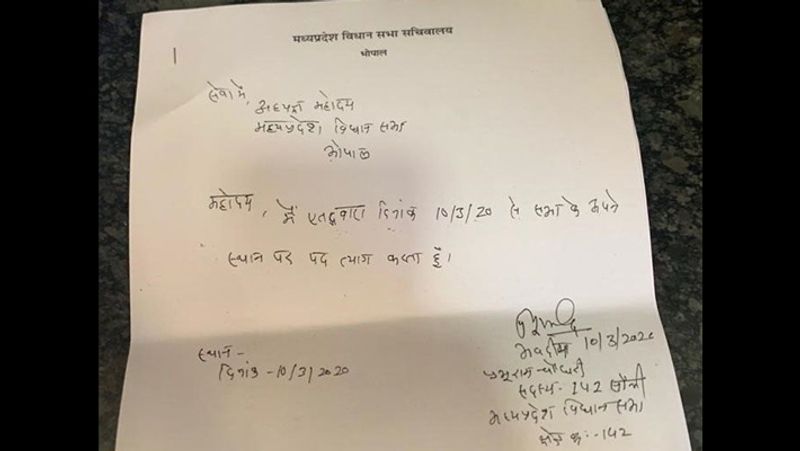 मध्यप्रदेश विधान सभा सचिवालय
भोपाल
सेवा में,
अध्यक्ष महोदय
मध्यप्रदेश विधान सभा
भोपाल
महोदय, मैं एतद् द्वारा दिनांक 10/3/20 से सभा के अपने
स्थान पर पद त्याग करता हूँ।
भवदीय 10/3/2020
स्थान -
दिनांक - 10/3/2020
प्रभुराम चौधरी
सदस्य - 142 साँची
मध्यप्रदेश विधान सभा
क्षेत्र क्र. - 142